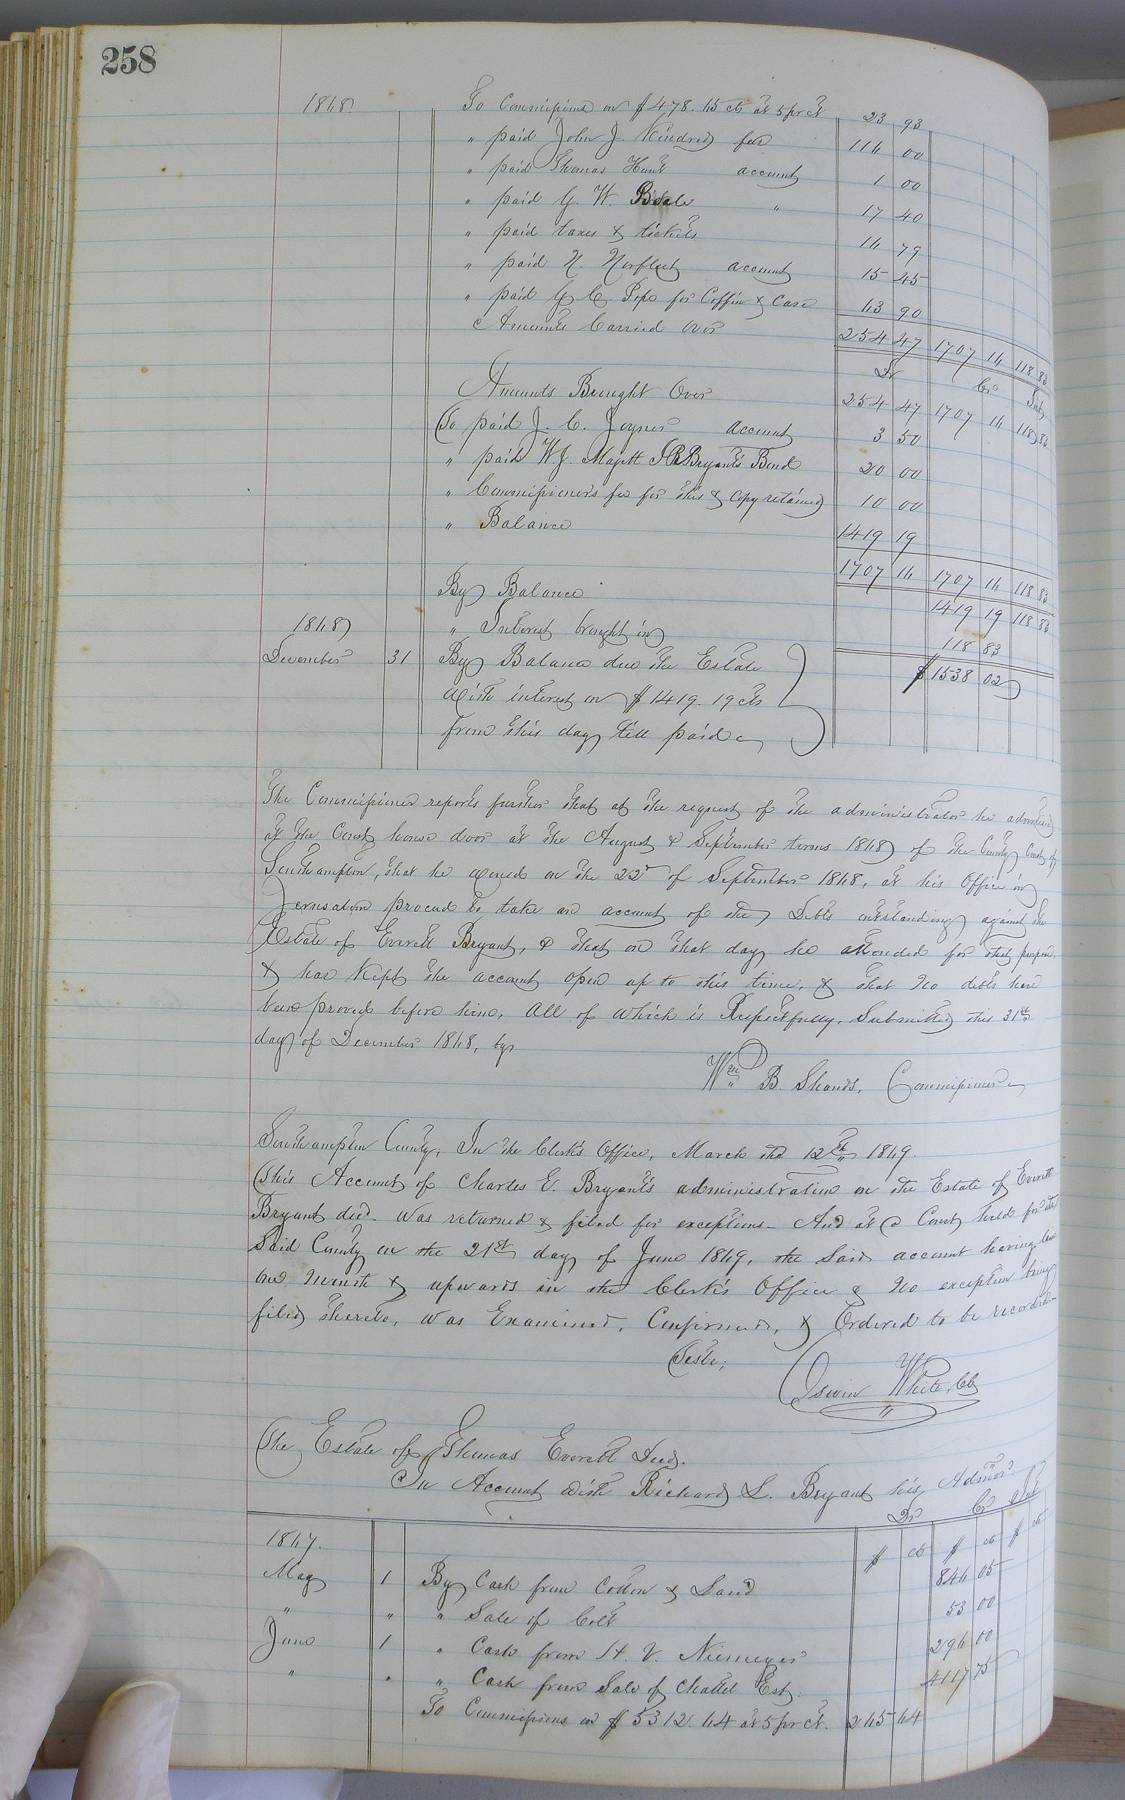 258
1848 To Commissions on $478.45 cts at 5 pr ct 23 93
" paid John J. Kindred fees 114 00
" paid Thomas Hunt account 1 00
" paid G. W. Beale " 17 40
" paid taxes & tickets 14 79
" paid N. Norfleet account 15 45
" paid G. C. Pope for Coffin & Case 43 90
Amounts Carried Over 254 47 1707 14 118 83
Dr Cr Int
Amounts Brought Over 254 47 1707 14 118 83
To paid J. C. Joyner account 3 50
" paid WJ. Majett Bryant's Bond 20 00
" Commissioner's fee for this & copy retained 10 00
" Balance 1419 19
1707 14 1707 14 118 83
By Balance 1419 19 118 83
1848 " Interest brought in 118 83
December 31 By Balance due the Estate $1538 02
with interest on $1419.19 cts
from this day till paid
The Commissioner reports further that at the request of the administrator he advertised
at the Court house door at the August & September terms 1848 of the County Court of
Southampton, that he would on the 22d of September 1848, at his Office in
Jerusalem proceed to take an account of the Debts outstanding against the
Estate of Everett Bryant, & that on that day he attended for that purpose,
& has kept the account open up to this time, & that No debts have
been proved before him, All of which is Respectfully Submitted this 31st
day of December 1848, by
Wm B. Shands, Commissioner
Southampton County, In the Clerk's Office, March the 12th 1849.
This Account of Charles E. Bryant's administration on the Estate of Everett
Bryant decd. was returned & filed for exceptions - And at a Court held for the
said County on the 21st day of June 1849, the said account having been
one Month & upwards in the Clerk's Office & No exception being
filed thereto, was Examined, Confirmed, & Ordered to be recorded.
Teste;
White, Clk
The Estate of Thomas Everett Decd.
In Account with Richard L. Bryant his Admor
Dr Cr Int
1847. $ cts $ cts $ cts
May 1 By Cash from Cotton & Land 846 05
" " " Sale of Colt 53 00
June 1 " Cash from H. V. Niemeyer 296 00
" " " Cash from Sale of Chattel Est. 4117 75
To Commissions on $5312.44 at 5 pr ct. 265 64